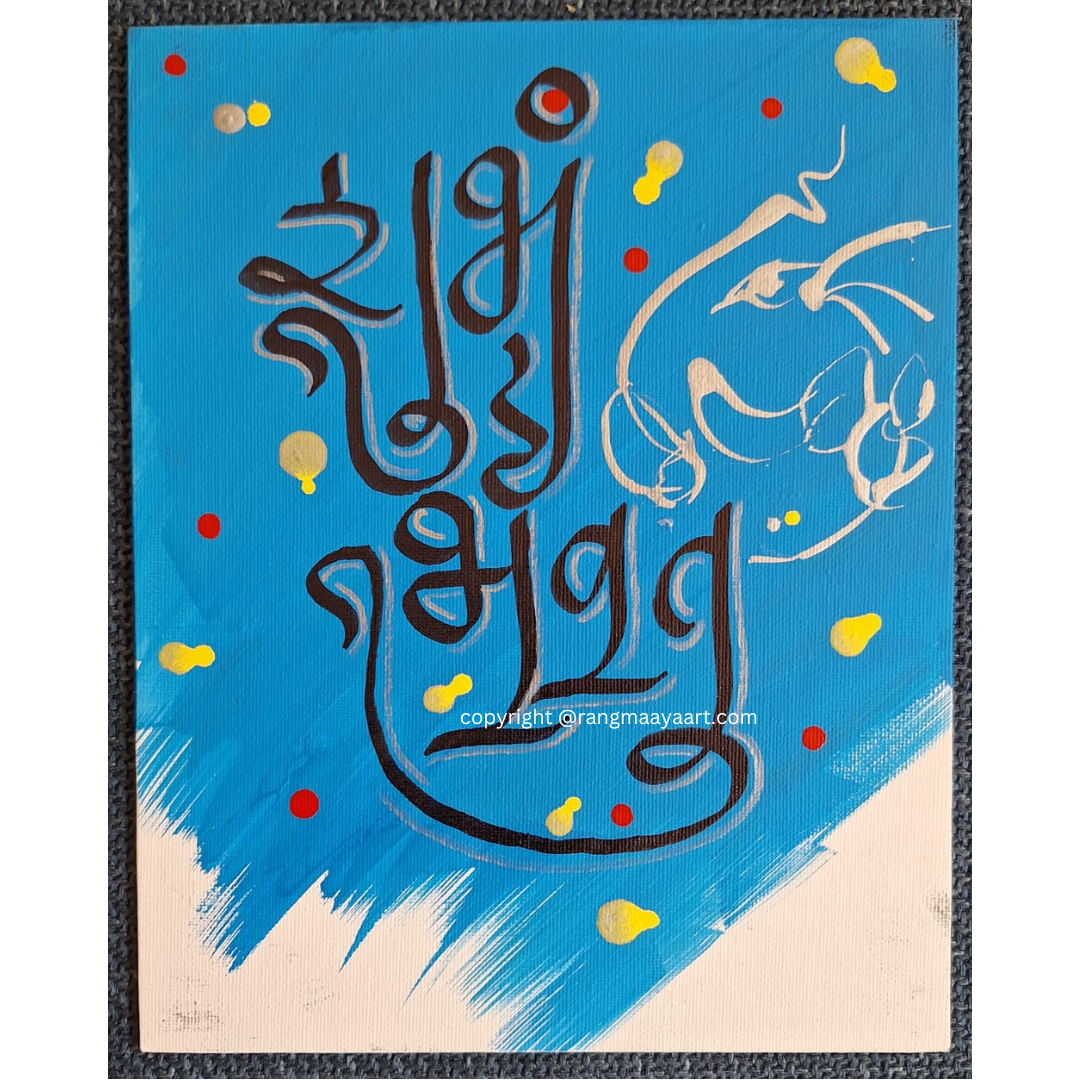 શુભં
ભવતુ
copyright @rangmaayaart.com